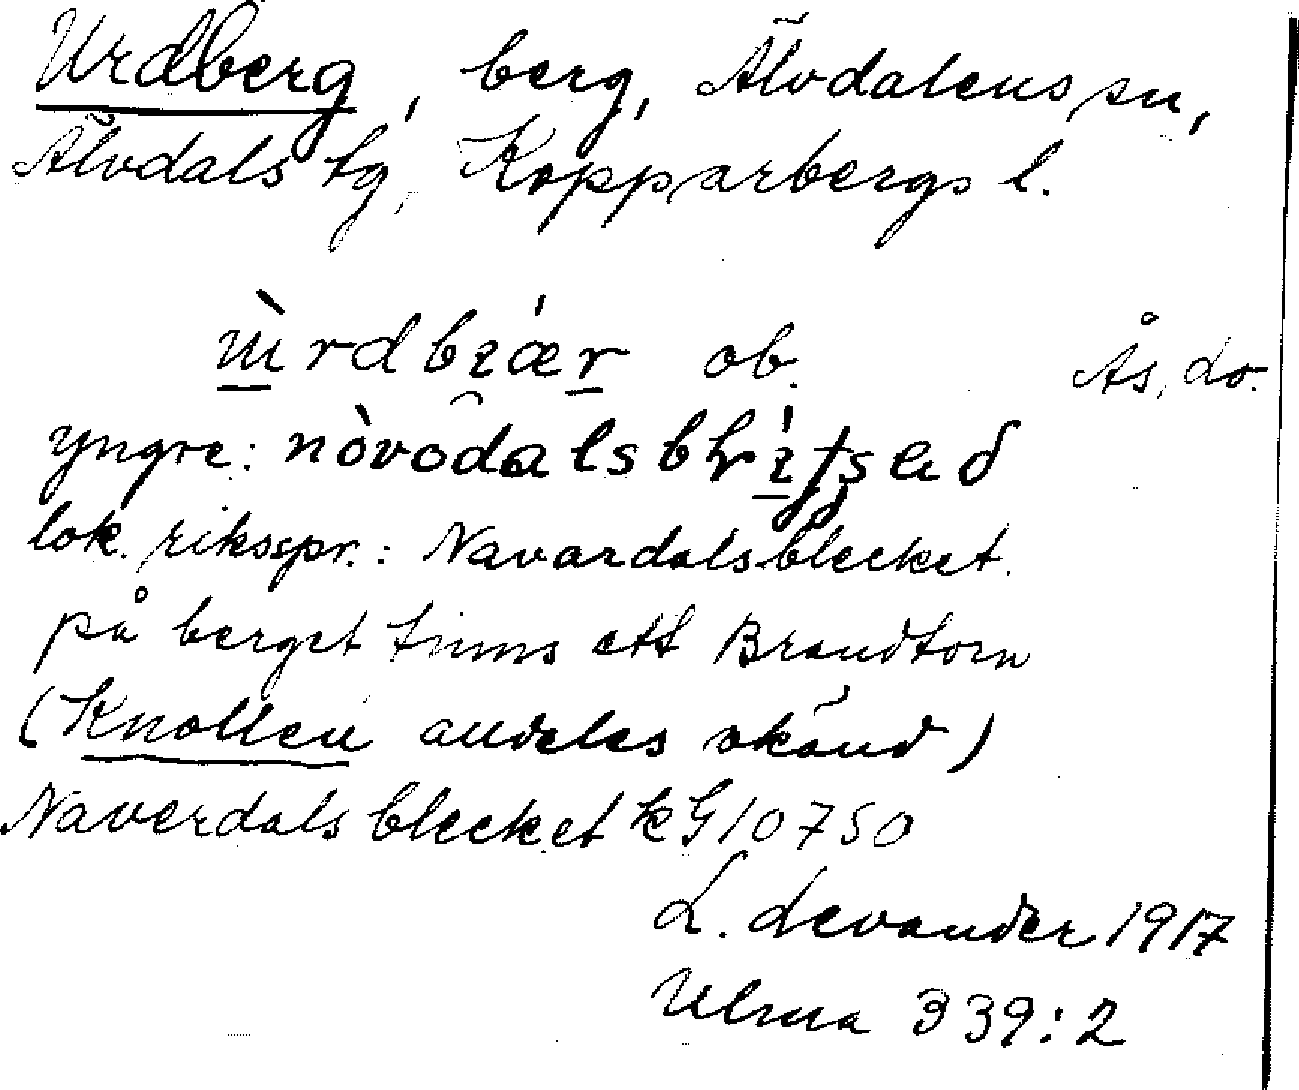 Urdberg, berg, Älvdalens sn,
Älvdals tg, Kopparbergs l.
ob. Ås, do.
yngre:
lok. riksspr.: Navardalsblecket.
på berget finns ett Brandtorn
(Knollen andeles okänd)
Naverdalsblecket kG10750
L. Levander 1917
Ulma 339:2